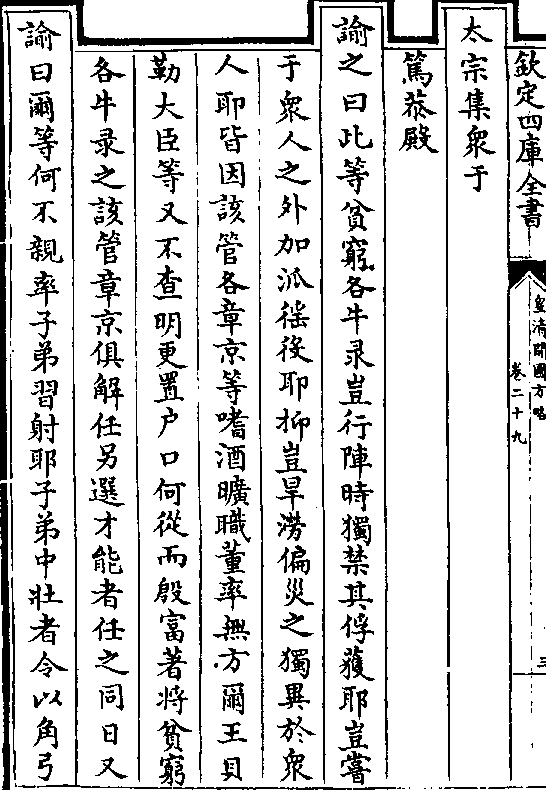 欽定四庫全書
皇清開國方略
卷二十九
三
太宗集衆于
篤恭殿
諭之曰此等貧窮各牛录豈行陣時獨禁其俘獲耶豈嘗
于衆人之外加派徭役耶抑豈旱澇偏災之獨異於衆
人耶皆因該管各章京等嗜酒曠職董率無方爾王貝
勒大臣等又不查明更置户口何從而殷富著將貧窮
各牛录之該管章京俱解任另選才能者任之同日又
諭曰爾等何不親率子弟習射耶子弟中壯者令以角弓